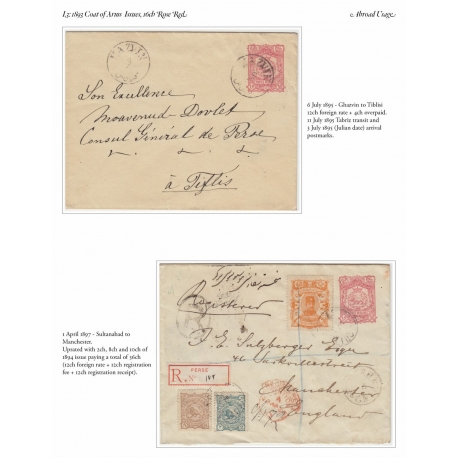 L3: 1893 Coat of Arms Issues, 16ch Rose Red.
Abroad Usage
KAZVIN
Son Excellence
Moavenud-Dovlet
Consul Général de Perse
à Tiflis
6 July 1895 - Ghazvin to Tiblisi
12ch foreign rate + 4ch overpaid.
11 July 1895 Tabriz transit and
3 July 1895 (Julian date) arrival
postmarks.
1 April 1897 - Sultanabad to
Manchester.
Uprated with 2ch, 8ch and 10ch of
1894 issue paying a total of 36ch
(12ch foreign rate + 12ch registration
fee + 12ch registration receipt).
Registered
J. E. Sulzberger Esqre
Manchester
England
PERSE
R. No